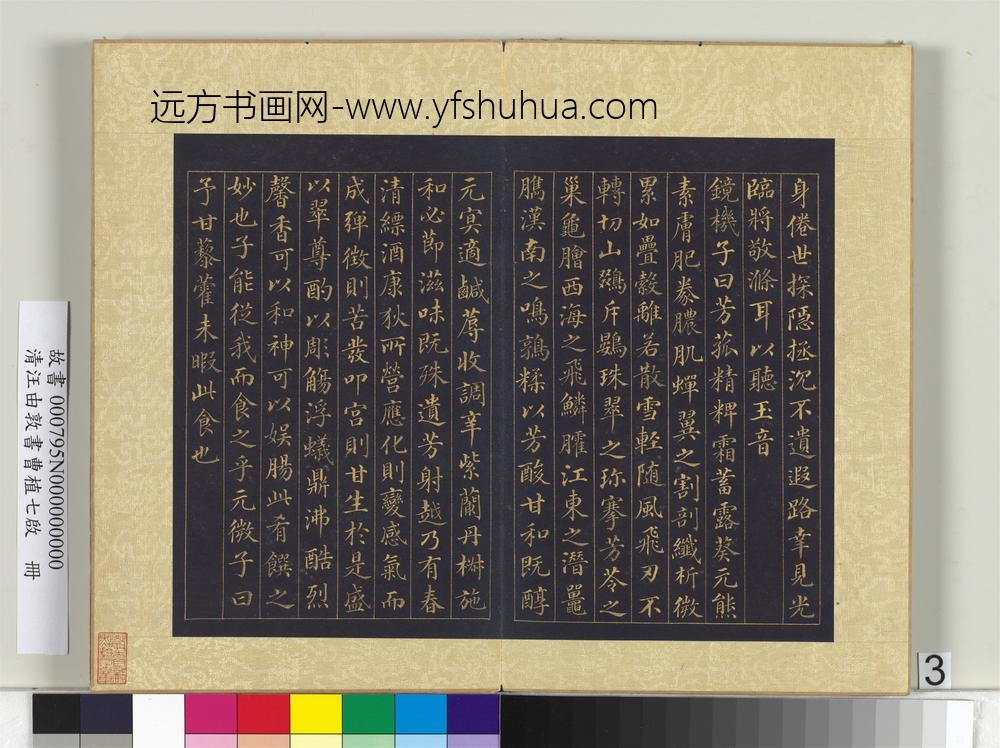 远方书画网-www.yfshuhua.com
身倦世探隱拯沉不遺遐路幸見光
臨將敬滌耳以聽玉音
鏡機子曰芳菰精粺霜蓄露葵元熊
素膚肥豢膿肌蟬翼之割剖纖析微
累如疊縠離若散雪輕随風飛刃不
轉切山鵽斥鷃珠翠之珎搴芳苓之
巢龜膾西海之飛鱗臛江東之潛鼉
臇漢南之鳴鶉糅以芳酸甘和既醇
元冥適鹹蓐收調辛紫蘭丹椒施
和必節滋味既殊遺芳射越乃有春
清縹酒康狄所營應化則變感氣而
成弹徴則苦發叩宫則甘生於是盛
以翠尊酌以彫觴浮蟻鼎沸酷烈
馨香可以和神可以娱腸此肴饌之
妙也子能從我而食之乎元微子曰
予甘藜藿未暇此食也
故書 000795N000000000
清汪由敦書曹植七啟 冊
3